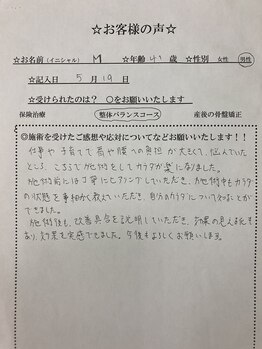 ☆お客様の声☆
☆お名前(イニシャル) M ☆年齢 41 歳 ☆性別 女性 男性
☆記入日 5月19日
☆受けられたのは? ○をお願いいたします
保険治療 整体バランスコース 産後の骨盤矯正
◎施術を受けたご感想や応対についてなどお願いします!!
仕事や子育てで肩や腰への負担が大きくて、悩んでいた
ところ、こちらで施術をしてカラダが楽になりました。
施術前には丁寧にヒアリングしていただき、施術中もカラダ
の状態を事細かく教えていただき、自分のカラダについて知ることが
できました。
施術後も、改善具合を説明していただき、効果の見える化も
あり、効果を実感できました。今後もよろしくお願いします。